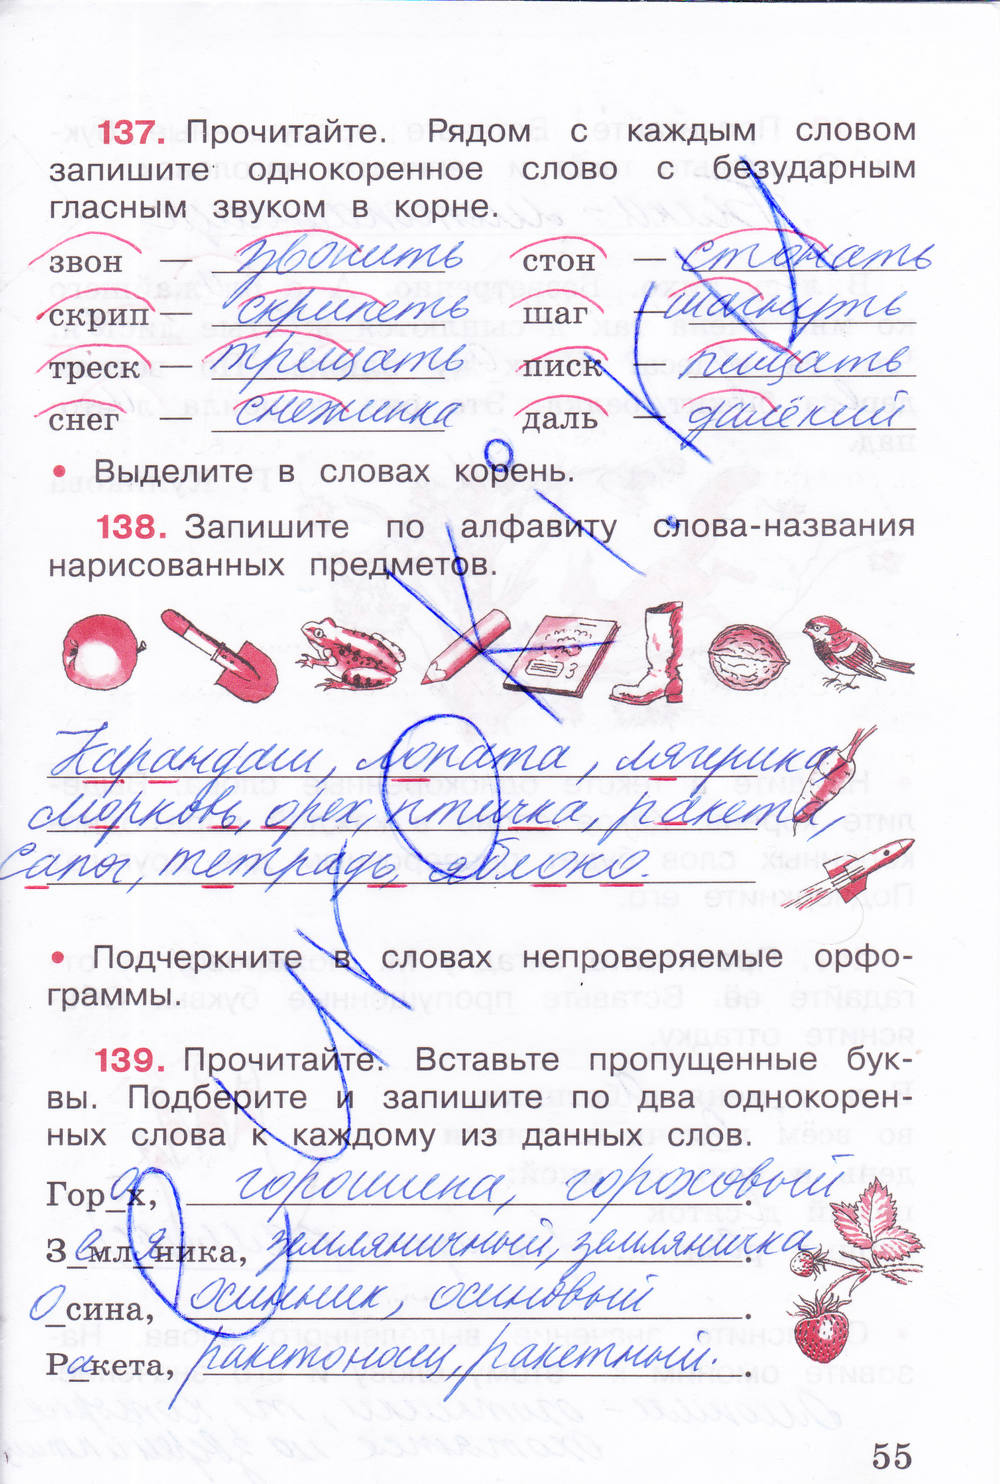 137. Прочитайте. Рядом с каждым словом
запишите однокоренное слово с безударным
гласным звуком в корне.
звон — звонить стон — стонать
скрип — скрипеть шаг — шагнуть
треск — трещать писк — пищать
снег — снежинка даль — далёкий
• Выделите в словах корень.
138. Запишите по алфавиту слова-названия
нарисованных предметов.
Карандаш, лопата, лягушка,
морковь, орех, птичка, ракета,
сапог, тетрадь, яблоко.
• Подчеркните в словах непроверяемые орфо-
граммы.
139. Прочитайте. Вставьте пропущенные бук-
вы. Подберите и запишите по два однокорен-
ных слова к каждому из данных слов.
Горох, горошина, гороховый
Земляника, земляничный, земляничка.
Осина, осинник, осиновый.
Ракета, ракетоносец, ракетный.
55